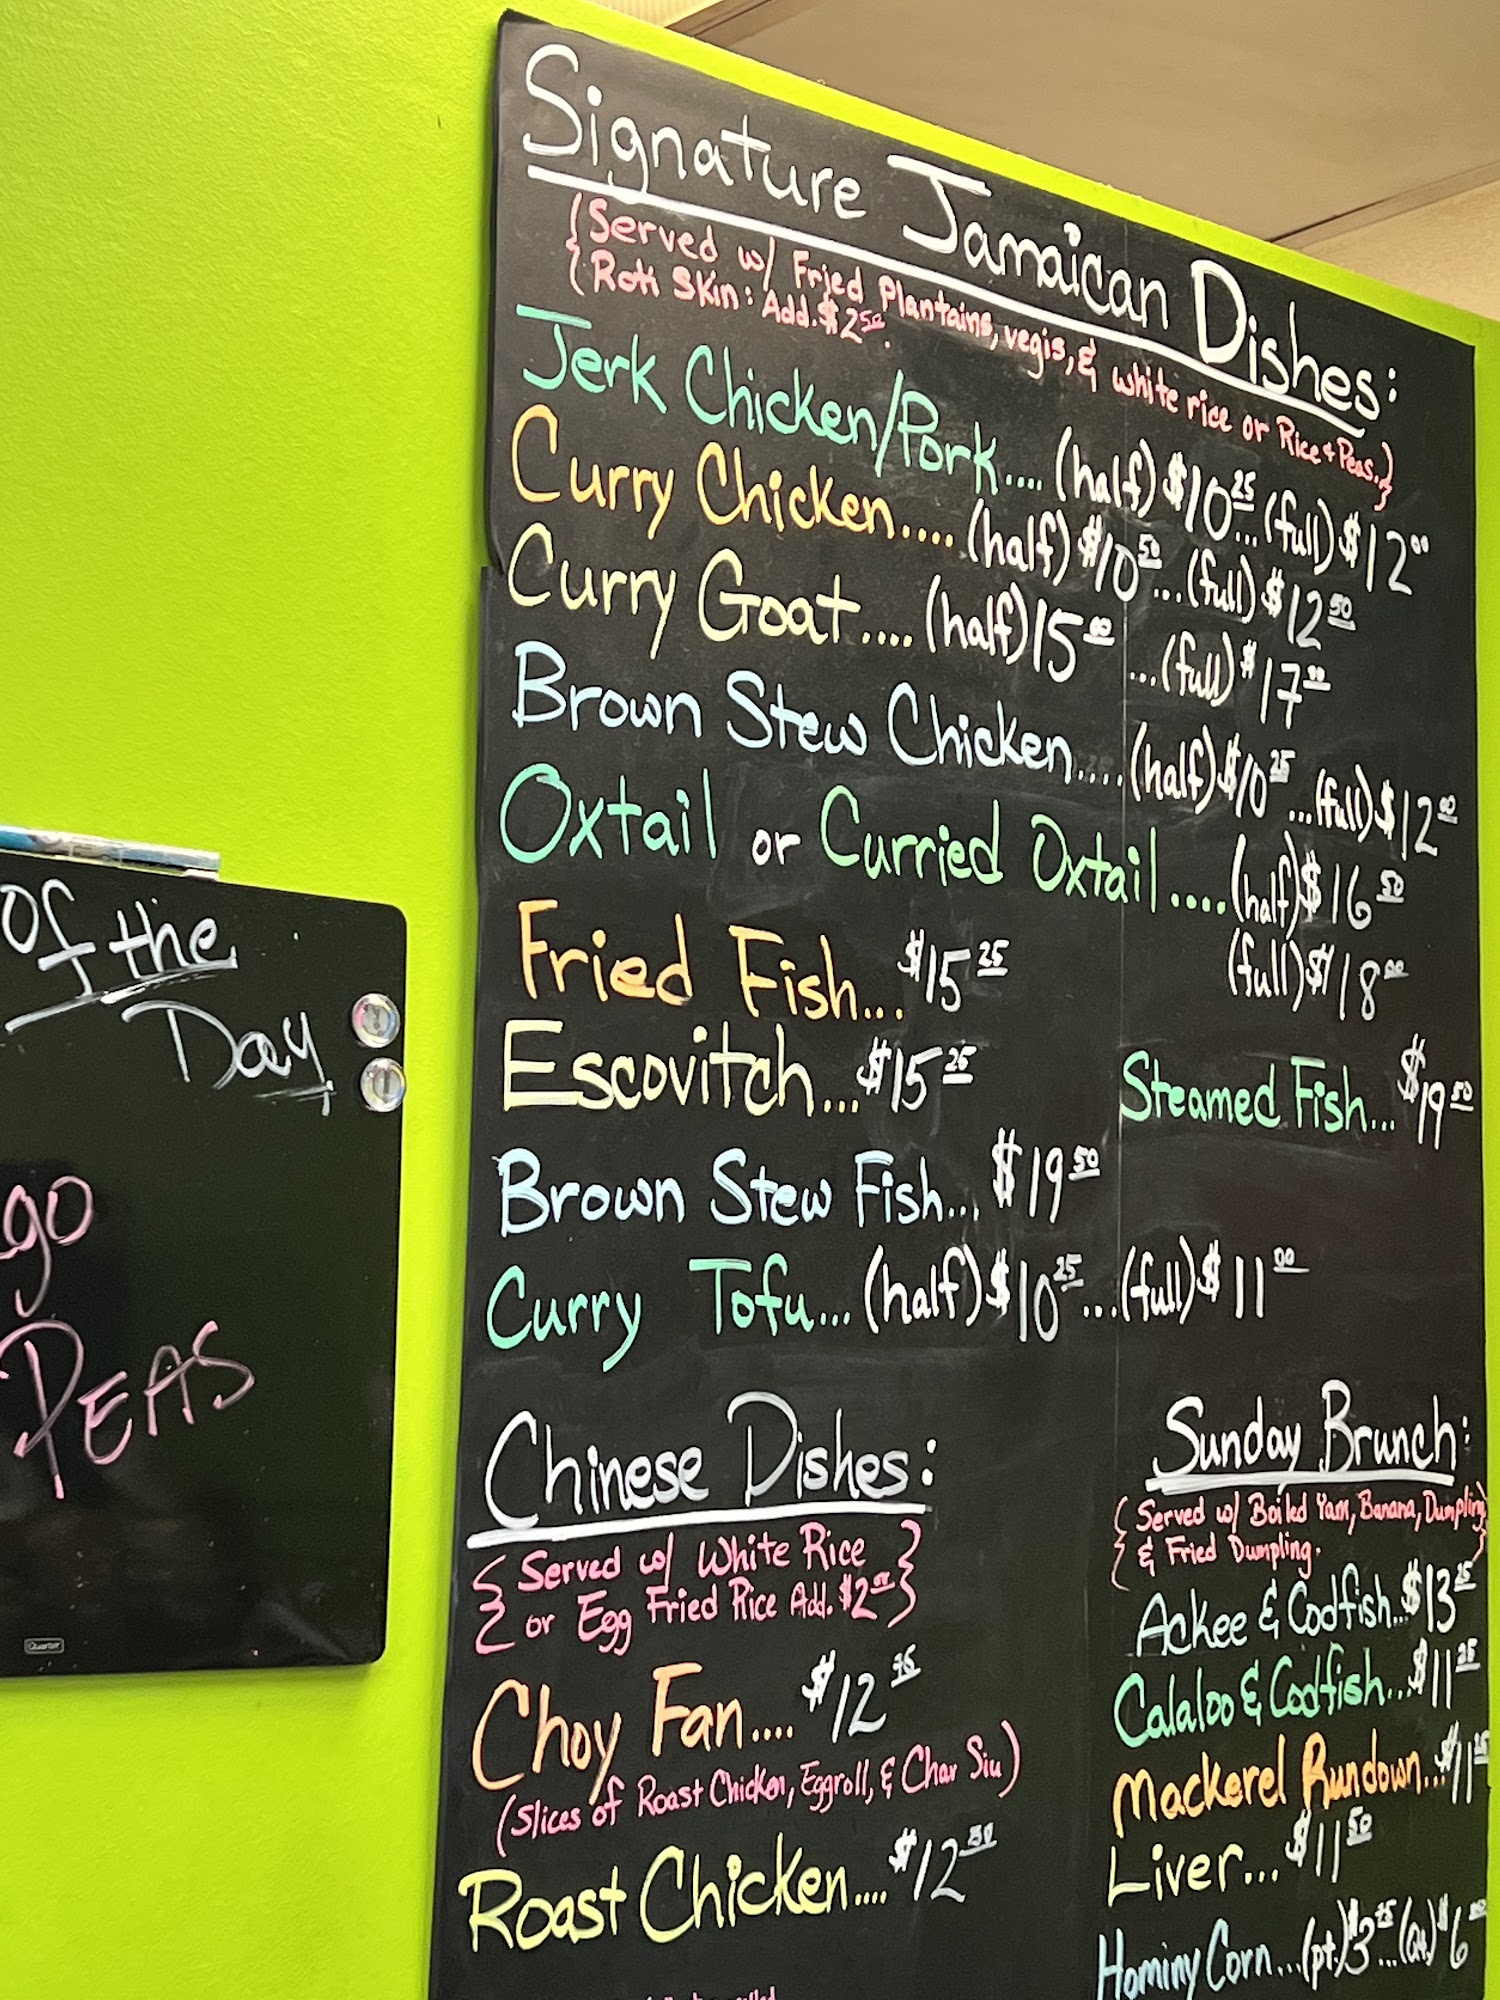 Signature Jamaican Dishes:
{Served w/ Fried Plantains, vegis, & white rice or Rice + Peas.}
Roti Skin: Add. $2.50.
Jerk Chicken/Pork.... (half) $10.25... (full) $12.00
Curry Chicken.... (half) $10.50...(full) $12.50
Curry Goat.... (half) 15.00 ...(full) $17.00
Brown Stew Chicken.... (half) $10.25...(full) $12.00
Oxtail or Curried Oxtail.... (half) $16.50
(full) $18.00
Fried Fish... $15.25
Escovitch... $15.25
Steamed Fish... $19.50
Brown Stew Fish... $19.50
Curry Tofu... (half) $10.25...(full) $11.00
Chinese Dishes:
{Served w/ White Rice
or Egg Fried Rice Add. $2.00}
Choy Fan.... $12.75
(slices of Roast Chicken, Eggroll, & Char Siu)
Roast Chicken.... $12.50
Sunday Brunch:
{Served w/ Boiled Yam, Banana, Dumpling
& Fried Dumpling.}
Ackee & Codfish... $13.25
Calaloo & Codfish... $11.25
Mackerel Rundown... $11.25
Liver... $11.50
Hominy Corn... (pt.) $3.75...(qt.) $6
Of the
Day
go
PEAS
Quartet